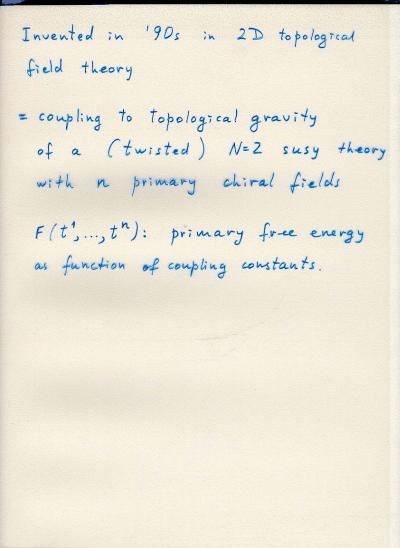 Invented in '90s in 2D topological
field theory
= coupling to topological gravity
of a (twisted) N=2 susy theory
with n primary chiral fields
F(t¹,...,tⁿ): primary free energy
as function of coupling constants.